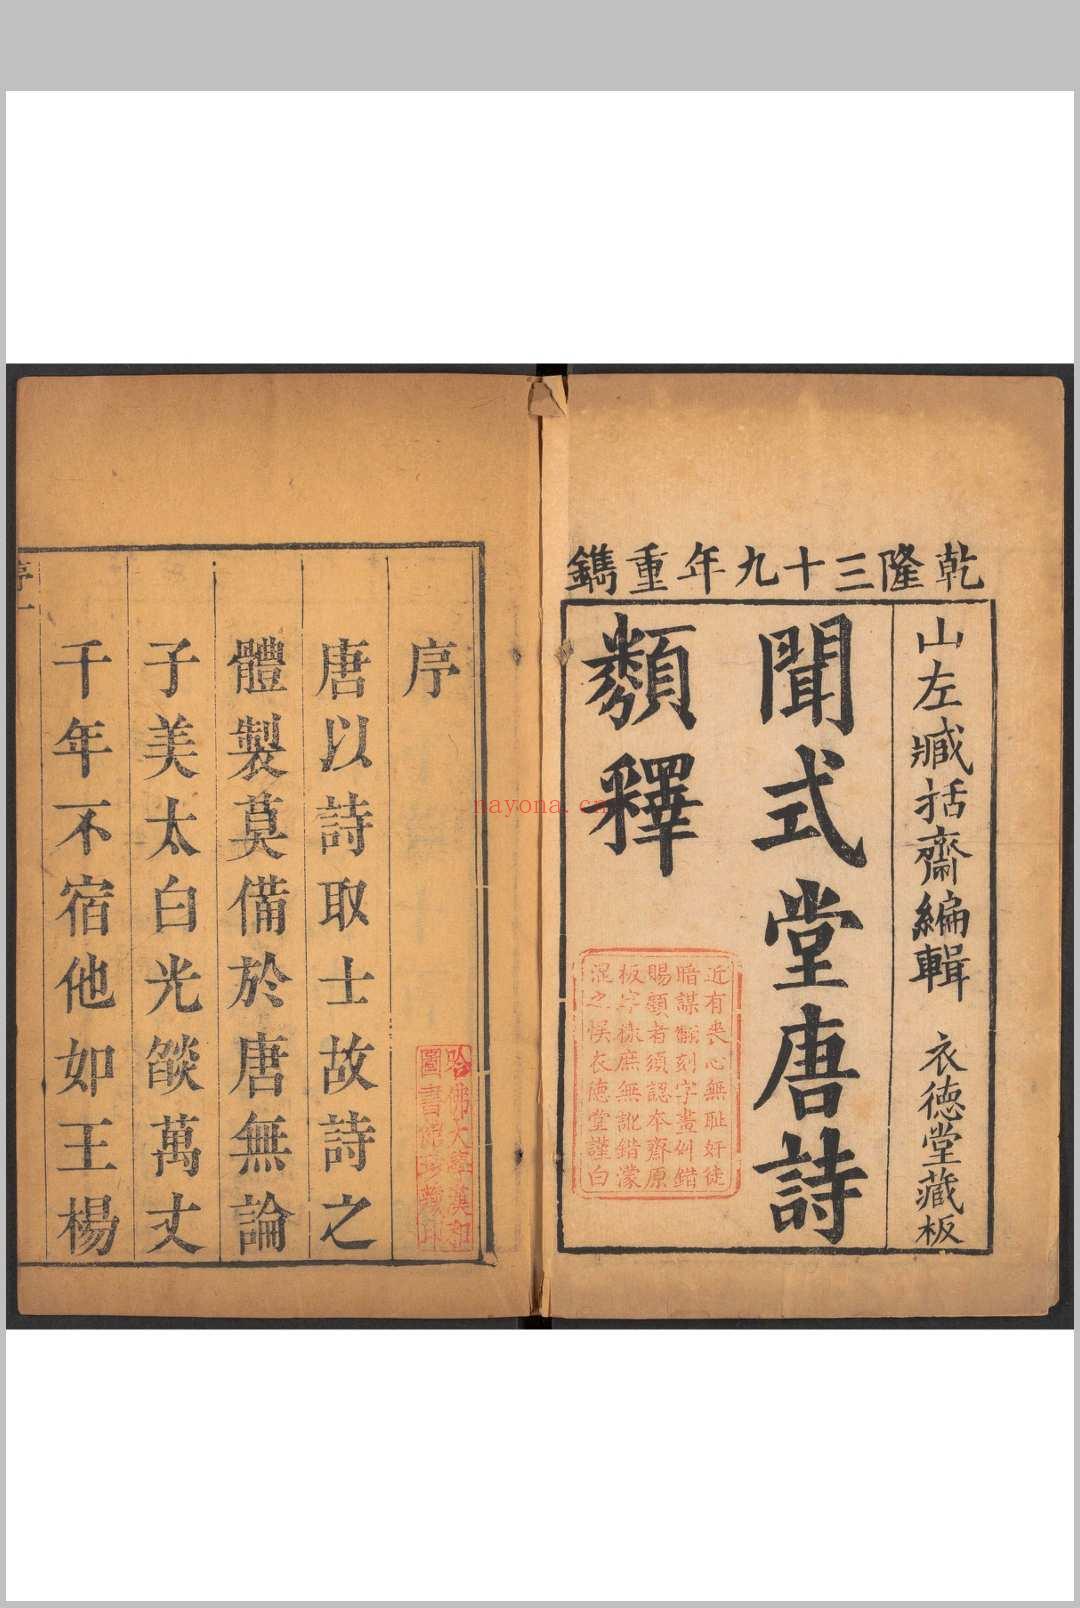 乾隆三十九年重鐫
山左臧括齋編輯 衣德堂藏板
聞式堂唐詩
類釋
近有喪心無恥奸徒
暗謀翻刻字畫舛錯
賜顧者須認本齋原
板字樣庶無訛錯濛
混之悞衣德堂謹白
序
唐以詩取士故詩之
體製莫備於唐無論
子美太白光燄萬丈
千年不宿他如王楊
序一
哈佛大學漢和
圖書館珍藏印
nayona.cn